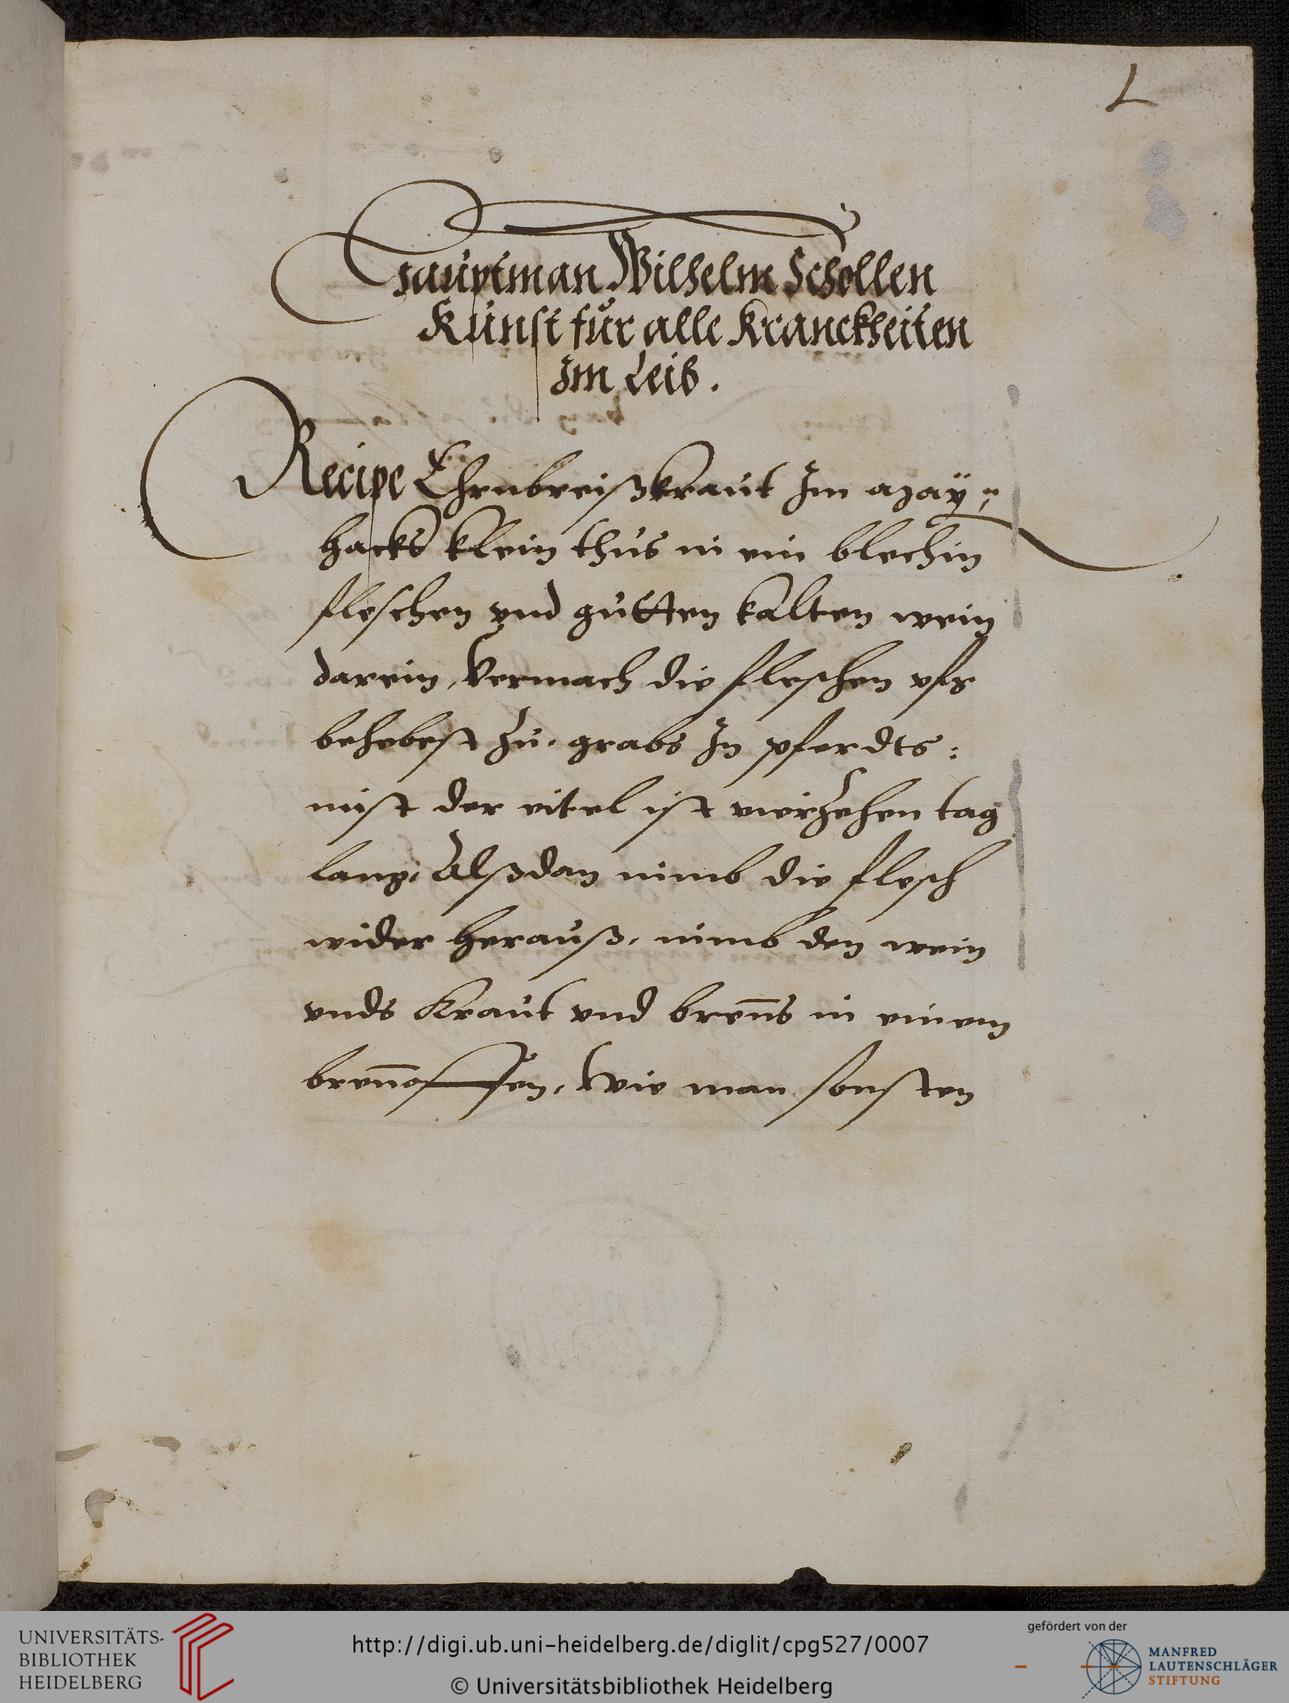 1
Hauptman Wilhelm Schollen
Kunst für alle Kranckheiten
Im Leib.
Recipe Ehrnbreißkraut Im may,
hacks klein thus in ein blechin
fleschen vnd gutten kalten wein
darein, Vermach die fleschen vfs
behebest zu, grabs In pferdts:
mist der eitel ist vierzehen tag
lang, Alßdan nimb die flesch
wider herauß, nimb den wein
vnds Kraut vnd breñs in einem
breñoffen, Wie man sonsten
UNIVERSITÄTS-
BIBLIOTHEK
HEIDELBERG
http://digi.ub.uni-heidelberg.de/diglit/cpg527/0007
© Universitätsbibliothek Heidelberg
gefördert von der
MANFRED
LAUTENSCHLÄGER
STIFTUNG